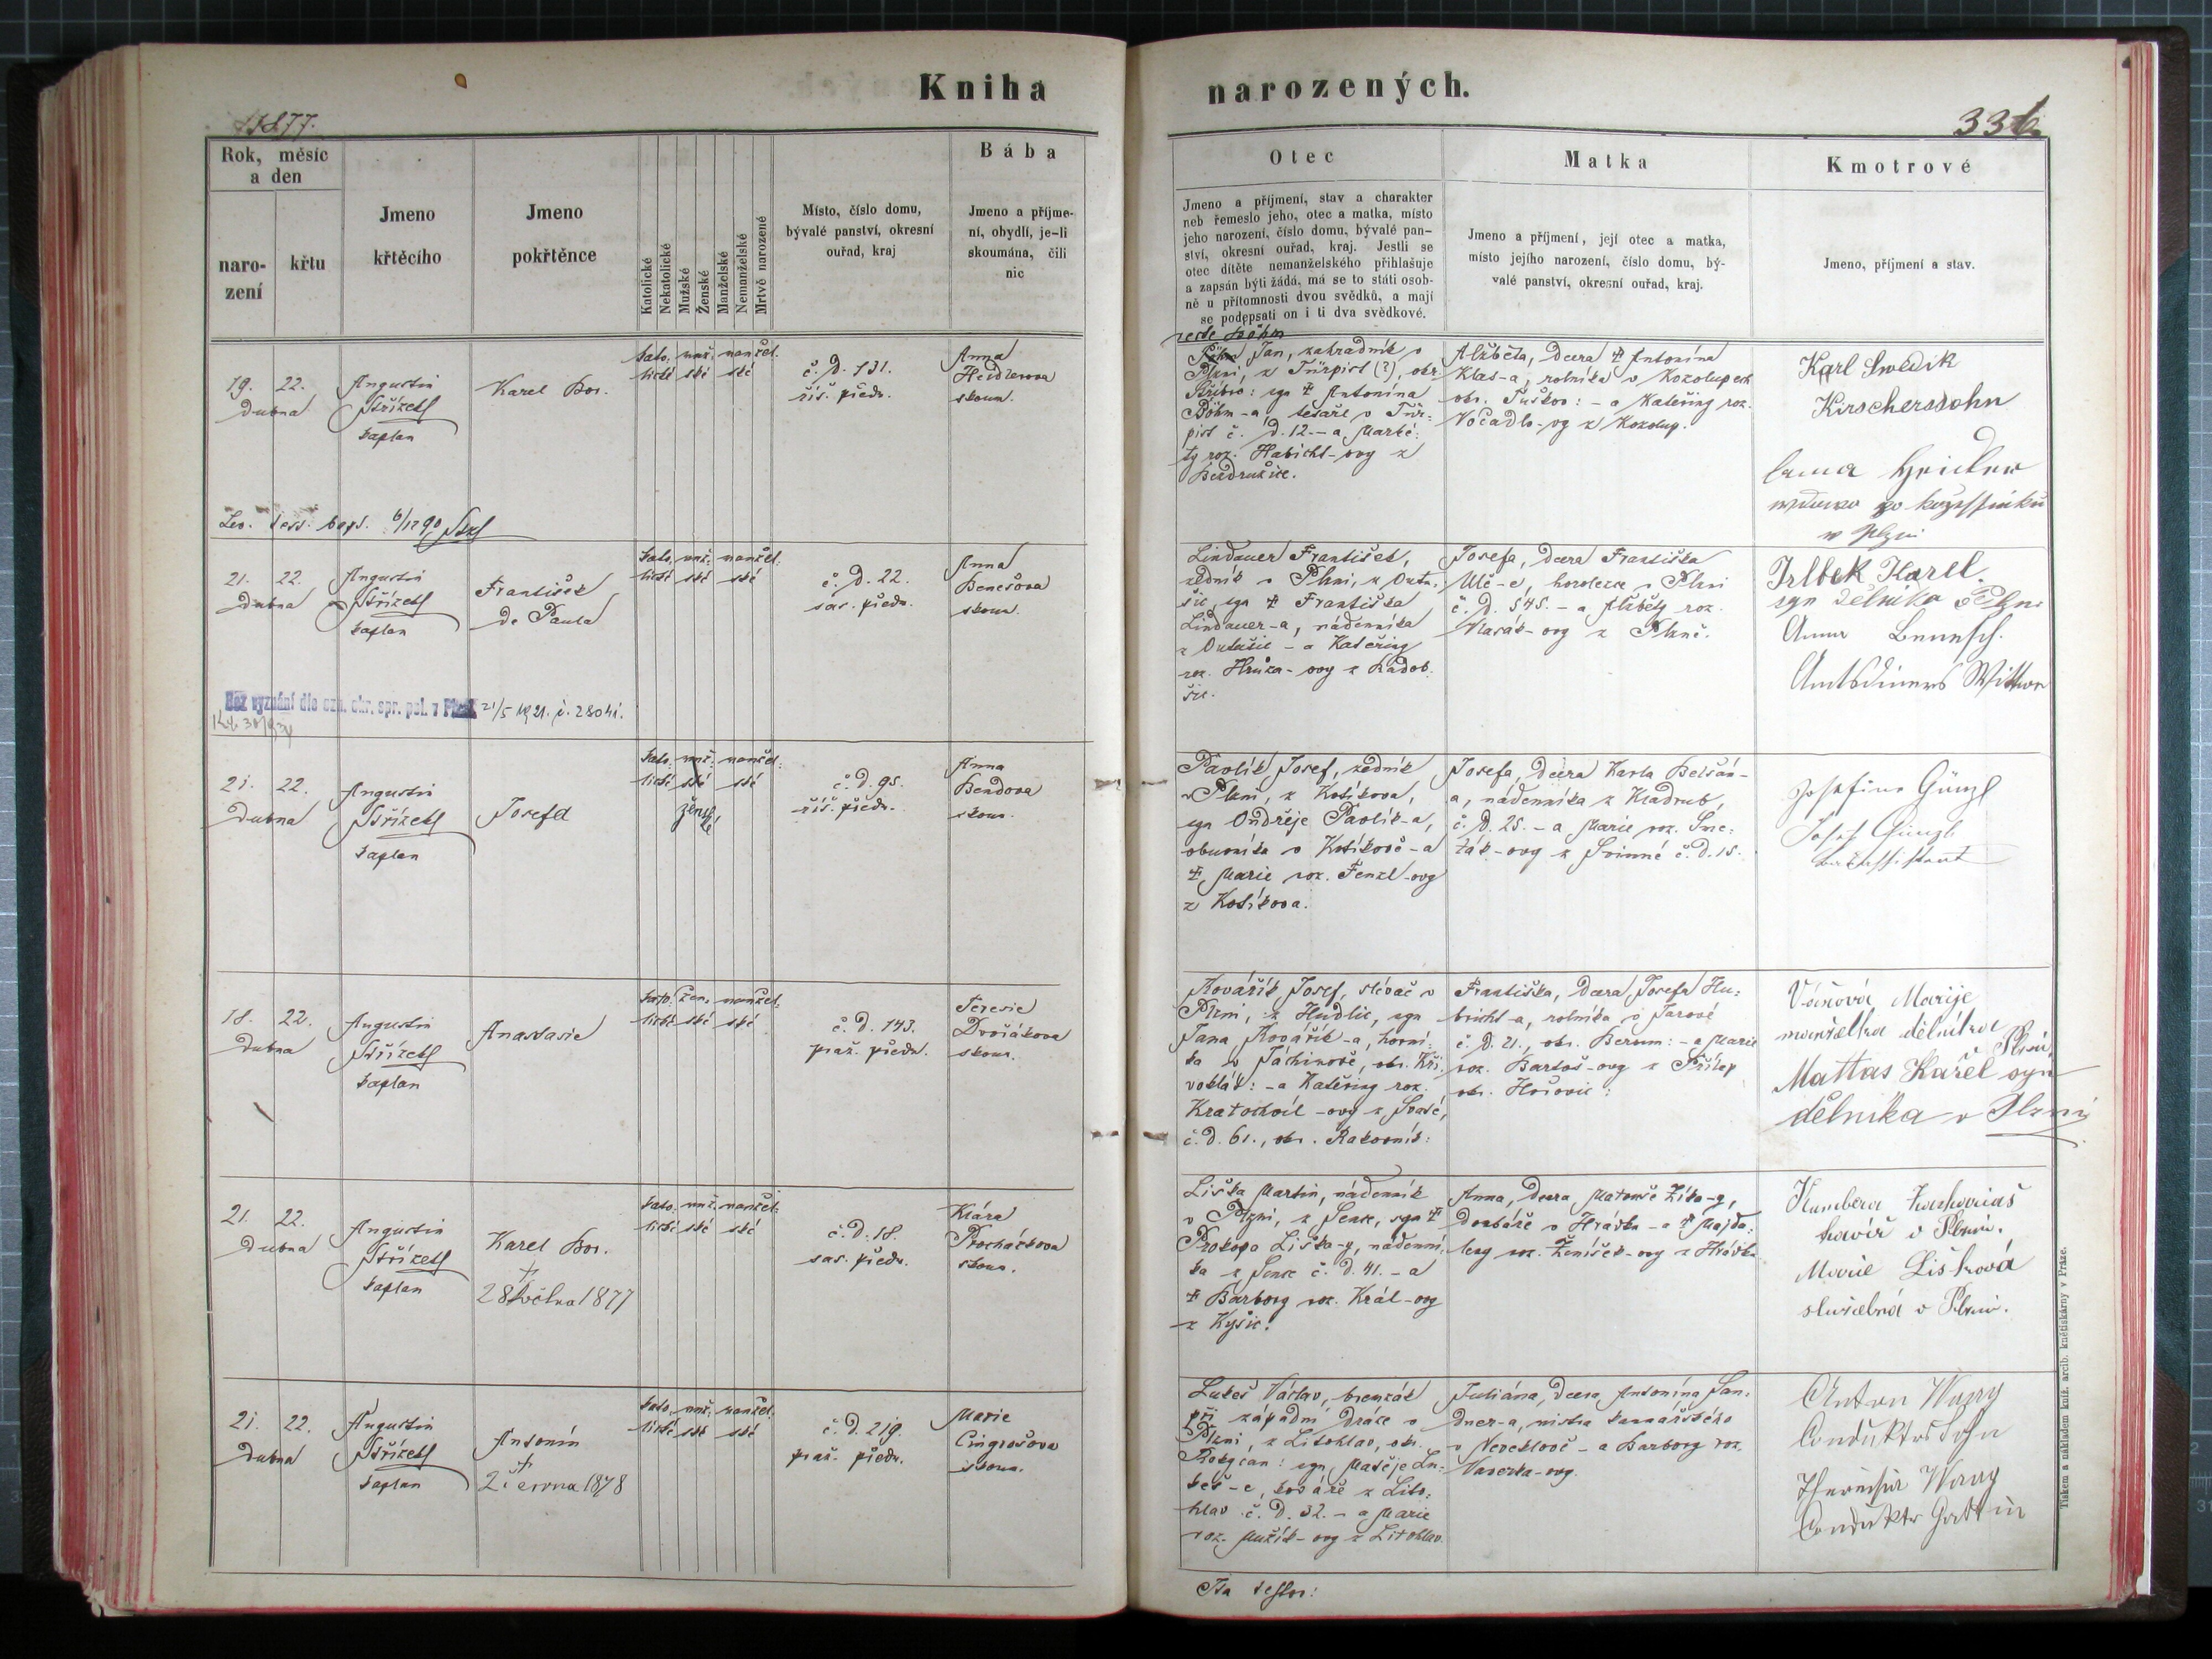 Kniha narozených.
1877.
336.
Rok, měsíc
a den
naro-
zení
křtu
Jmeno
křtěcího
Jmeno
pokřtěnce
Katolické
Nekatolické
Mužské
Ženské
Manželské
Nemanželské
Mrtvě narozené
Místo, číslo domu,
bývalé panství, okresní
ouřad, kraj
Bába
Jmeno a příjme-
ní, obydlí, je-li
skoumána, čili
nic
Otec
Jmeno a příjmení, stav a charakter
neb řemeslo jeho, otec a matka, místo
jeho narození, číslo domu, bývalé pan-
ství, okresní ouřad, kraj. Jestli se
otec dítěte nemanželského přihlašuje
a zapsán býti žádá, má se to státi osob-
ně u přítomnosti dvou svědků, a mají
se podepsati on i ti dva svědkové.
Matka
Jmeno a příjmení, její otec a matka,
místo jejího narození, číslo domu, bý-
valé panství, okresní ouřad, kraj.
Kmotrové
Jmeno, příjmení a stav.
19. 22.
dubna
Augustin
Střízek
kaplan
Karel Bor.
kato: muž: manžel:
lické ské ské
č. d. 131.
říš. předm.
Anna
Heidlerova
skoum.
recte Böhm
Jan, zahradník v
Plzni, z Türpist (?), okr.
Stříbro: syn † Antonína
Böhm-a, tesaře v Tür-
pist č. d. 12. – a Marké:
ty roz. Habichl-ovy z
Bezdružic.
Alžběta, dcera † Antonína
Klas-a, rolníka v Kozolupech
okr. Tuškov: – a Kateřiny roz.
Vočadlo-vy z Kozolup.
Karl Swedik
Kirschersohn
Anna Heidler
w Plzni
21. 22.
dubna
Augustin
Střízek
kaplan
František
de Paula
kato: muž: manžel:
lické ské ské
č. d. 22.
sas. předm.
Anna
Benešova
skoum.
Bez vyznání dle ozn. okr. spr. pol. v Plzni 21/5 1921. č. 28041.
Lindauer František,
zedník v Plzni, z Outu:
šic, syn † Františka
Lindauer-a, nádenníka
z Outušic – a Kateřiny
roz. Hrůza-ovy z Radob:
šic.
Josefa, dcera Františka
Ulč-e, horolezce v Plzni
č. d. 545. – a Alžběty roz.
Vlasák-ovy z Plzně.
Irlbek Karel.
syn dělníka v Plzni
Anna Benesch.
Amtsdieners Wittwe
21. 22.
dubna
Augustin
Střízek
kaplan
Josefa
kato: muž: manžel:
lické ské ské
ženské
č. d. 95.
říš. předm.
Anna
Bendova
skoum.
Pavlík Josef, zedník
v Plzni, z Kotíkova,
syn Ondřeje Pavlík-a,
obuvníka v Kotíkově – a
† Marie roz. Fenzl-ovy
z Kotíkova.
Josefa, dcera Karla Belšán-
a, nádenníka z Kladrub,
č. d. 25. – a Marie roz. Sme:
ták-ovy z Svinné č. d. 15.
Josefine Güngl
Josef Güngl
18. 22.
dubna
Augustin
Střízek
kaplan
Anastasie
kato: žen: manžel:
lické ské ské
č. d. 143.
praž. předm.
Teresie
Dvořákova
skoum.
Kovářík Josef, slévač v
Plzni, z Hudlic, syn
Jana Kovářík-a, horní:
ka v Jáchimově, okr. Kři:
voklát: – a Kateřiny roz.
Kratochvíl-ovy z Svaté,
č. d. 61., okr. Rakovník:
Františka, dcera Josefa Hu:
bricht-a, rolníka v Jarově
č. d. 21., okr. Beroun: – a Marie
roz. Bartoš-ovy z Přílep
okr. Hořovic:
Váňová Marije
manželka dělníka
Plzni.
Mattas Karel syn
dělníka v Plzni
21. 22.
dubna
Augustin
Střízek
kaplan
Karel Bor.
†
28 května 1877
kato: muž: manžel:
lické ské ské
č. d. 18.
sas. předm.
Klára
Procháčkova
skoum.
Liška Martin, nádenník
v Plzni, z Sence, syn †
Prokopa Liška-y, nádenní:
ka z Sence č. d. 41. – a
† Barbory roz. Král-ovy
z Kyšic.
Anna, dcera Matouše Zíka-y,
v Hrádku – a † Majda:
leny roz. Ženíšek-ovy z Hrádku
Kumbera Zachariaš
kovář v Plzni.
Marie Lišková
služebná v Plzni.
21. 22.
dubna
Augustin
Střízek
kaplan
Antonín
†
2. června 1878
kato: muž: manžel:
lické ské ské
č. d. 219.
praž. předm.
Marie
Cingrošova
skoum.
Lukeš Václav, bremzák
při západní dráze v
Plzni, z Litohlav, okr.
Rokycan: syn Matěje Lu:
keš-e, kováře z Lito:
hlav č. d. 32. – a Marie
roz. Mužík-ovy z Litohlav.
Juliána, dcera Antonína San:
dner-a, mistra komářského
v Neveklově – a Barbory roz.
Vaverka-ovy.
Anton Wany
Conduktors Sohn
Theresia Wany
Condukters Gattin